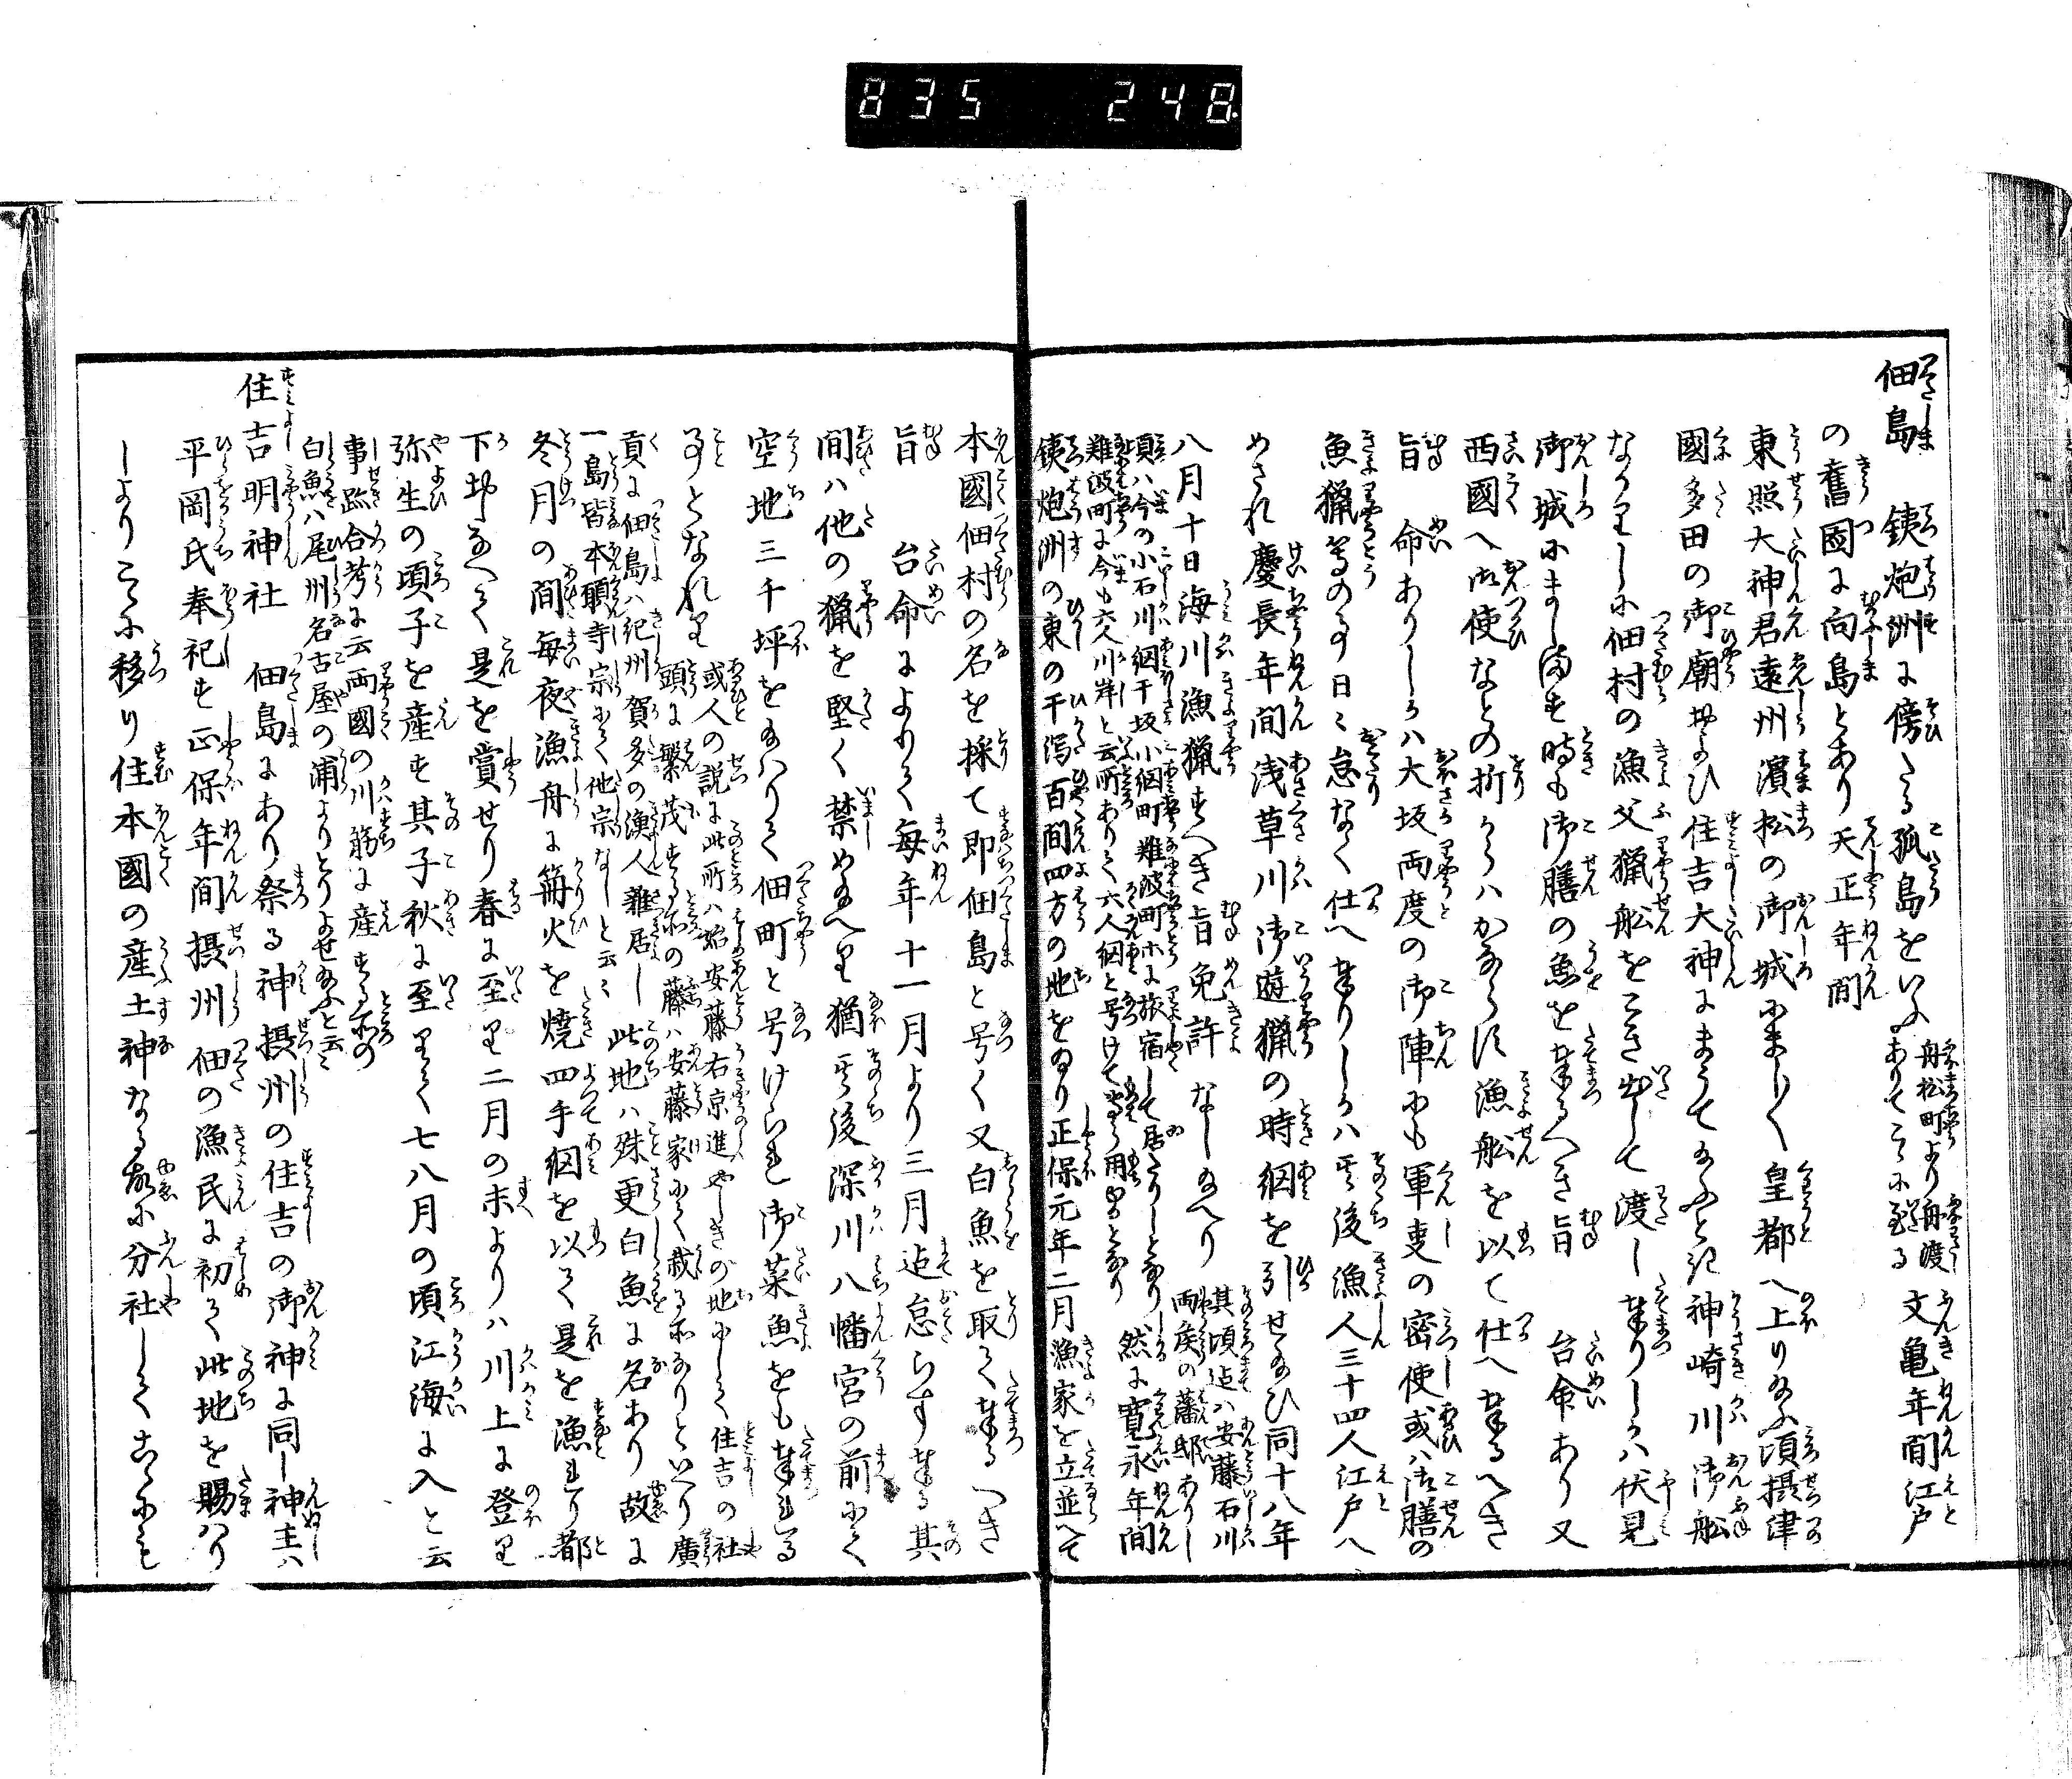 835 248
佃島 銕炮洲に傍たる孤島をいふ 舟松町より舟渡ありてこゝに至る 文亀年間江戸
の舊國に向島とあり天正年間
東照大神君遠州濱松の御城にましく 皇都へ上り給ふ頃摂津
國多田の御廟およひ住吉大神にまうて給ふと紀 神崎川御舩
なかりしに佃村の漁父猟舩をこき出して渡し奉りしかハ伏見
御城にまし満す時も御膳の魚を奉るへき旨 台命あり又
西國へ御使なとの折からハかならす漁舩を以て仕へ奉るへき
旨 命ありしかハ大坂両度の御陣にも軍吏の密使或ハ御膳の
魚猟等の事日〻怠なく仕へ奉りしかハ其後漁人三十四人江戸へ
めされ慶長年間浅草川御遊猟の時網を引せ給ひ同十八年
八月十日海川漁猟すへき旨免許なし給へり 其頃迠ハ安藤石川両侯の藩邸ありし
頃ハ今の小石川網干坂小網町難波町ホに旅宿して居たりしとなり 然に寛永年間
難波町に今も六人川岸と云所ありて六人網と号けて
銕炮洲の東の干潟百間四方の地を給り正保元年二月漁家を立並へて
本國佃村の名を採て即佃島と号く又白魚を取て奉るへき
旨 台命によりて毎年十一月より三月迠怠らす奉る其
間ハ他の猟を堅く禁め給へり猶其後深川八幡宮の前にて
空地三千坪を給ハりて佃町と号けられ御菜魚をも奉る
事となれり 或人の説に此所ハ始安藤右京進やしきの地にして住吉の社
頭に繁茂する所の藤ハ安藤家にて栽る所なりといへり廣
貢に佃島ハ紀州賀多の漁人雑居し 此地ハ殊更白魚に名あり故に
一島皆本願寺宗にて他宗なしと云〻
冬月の間毎夜漁舟に篝火を焼四手網を以て是を漁れり都
下おしなへて是を賞せり春に至り二月の末よりハ川上に登り
弥生の頃子を産す其子秋に至りて七八月の頃江海に入と云
事跡合考に云両國の川筋に産する所の
白魚ハ尾州名古屋の浦よりとりよせ給ふと云〻
住吉明神社 佃島にあり祭る神摂州の住吉の御神に同し神主ハ
平岡氏奉祀す正保年間摂州佃の漁民に初て此地を賜ハり
しよりこゝに移り住本國の産土神なる故に分社してこゝにも